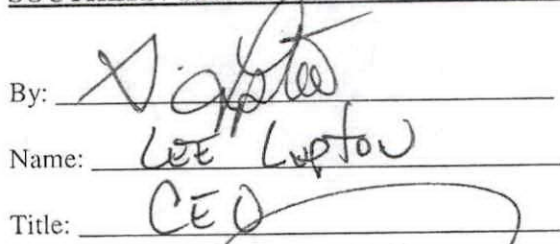 By:
Name: LEE LUPTON
Title: CEO